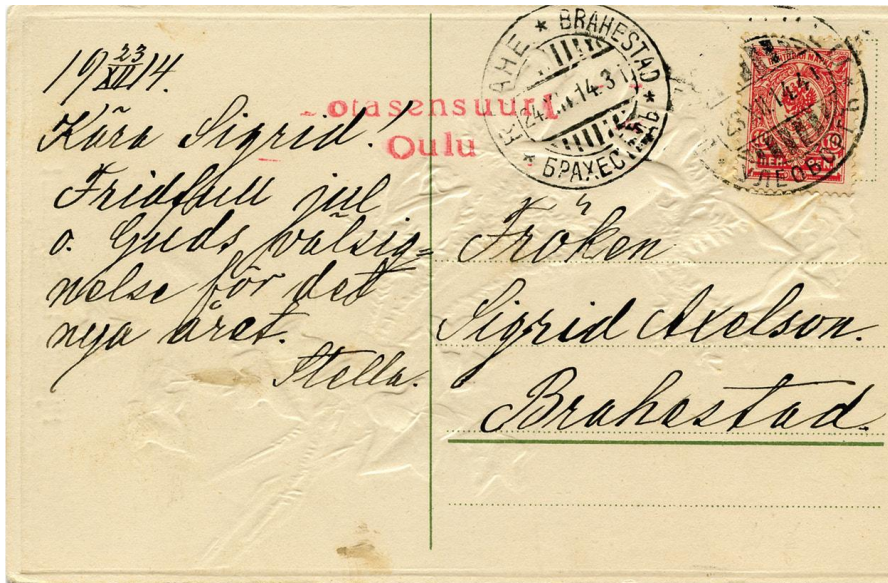 19 23/XII 14.
Kära Sigrid!
Fridfull jul
o. Guds välsig=
nelse för det
nya året.
Stella.
otasensuuri
Oulu
BRAHESTAD
24.XII.14.3
БРАХЕСТ
Fröken
Sigrid Axelson.
Brahestad.